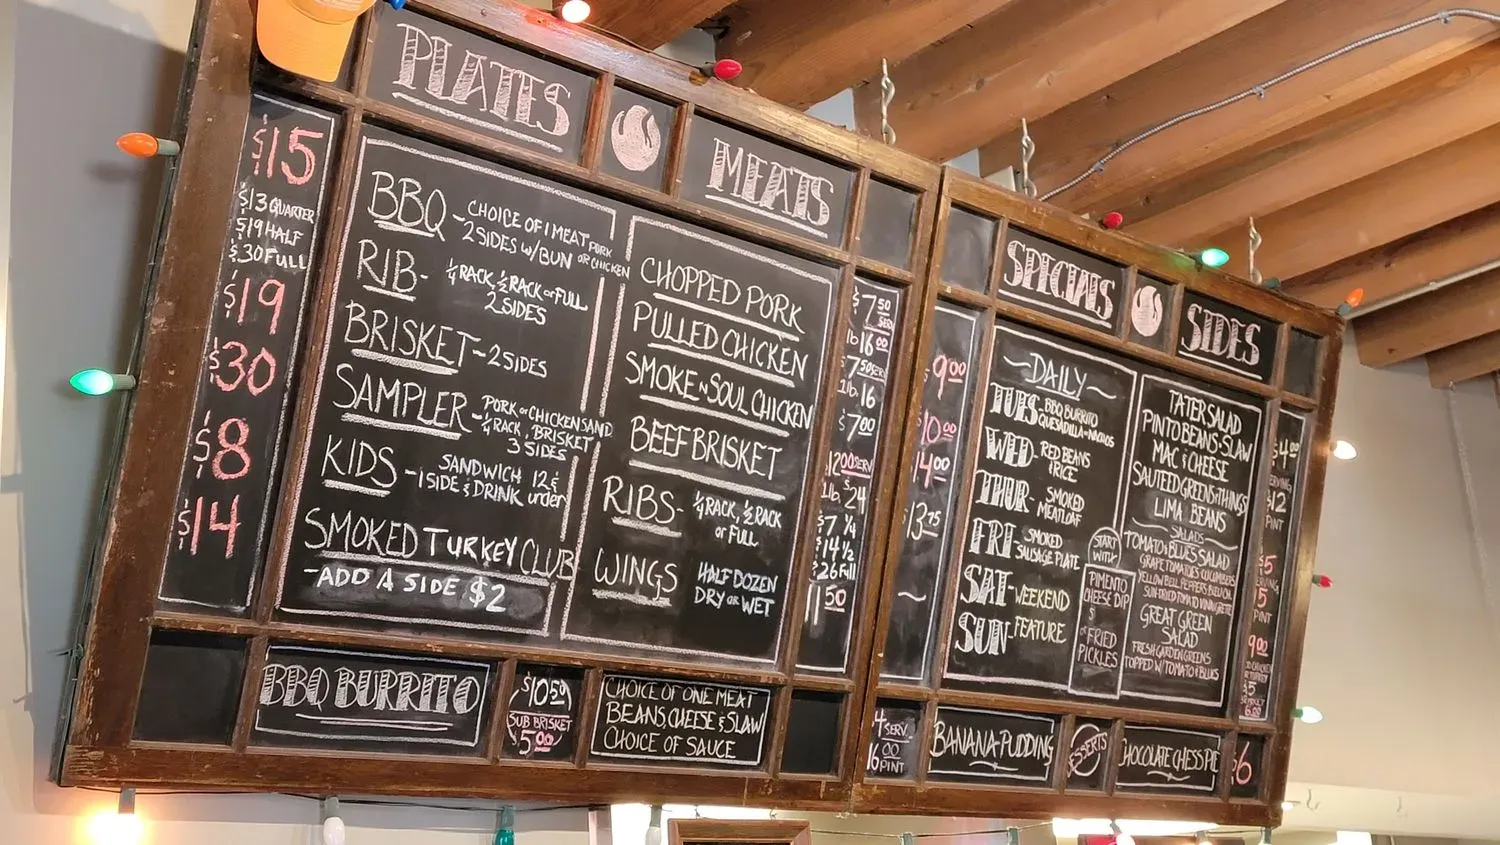 PLATES
$15
$13 QUARTER
$19 HALF
$30 FULL
$19
$30
$8
$14
BBQ - CHOICE OF 1 MEAT PORK OR CHICKEN
2 SIDES w/BUN
RIB - ¼ RACK, ½ RACK or FULL
2 SIDES
BRISKET - 2 SIDES
SAMPLER - PORK or CHICKEN SAND
¼ RACK, BRISKET
3 SIDES
KIDS - SANDWICH 12 &
1 SIDE & DRINK under
SMOKED TURKEY CLUB
- ADD A SIDE $2
MEATS
CHOPPED PORK
PULLED CHICKEN
SMOKE N SOUL CHICKEN
BEEF BRISKET
RIBS - ¼ RACK, ½ RACK
or FULL
WINGS HALF DOZEN
DRY OR WET
$7 50
SERV
lb 16 00
$7 50 SERV
lb. 16
$7 00
12 00 SERV
lb. $24
$7 ¼
$14 ½
$26 Full
11 50
BBQ BURRITO
$10 50
SUB BRISKET
$5 00
CHOICE OF ONE MEAT
BEANS CHEESE & SLAW
CHOICE OF SAUCE
SPECIALS
$9 00
$10 00
14 00
$13 75
~
~DAILY~
TUES - BBQ BURRITO
QUESADILLA - NACHOS
WED - RED BEANS
& RICE
THUR - SMOKED
MEATLOAF
FRI - SMOKED
SAUSAGE PLATE
SAT - WEEKEND
SUN - FEATURE
START
WITH
PIMENTO
CHEESE DIP
$
or FRIED
PICKLES
SIDES
TATER SALAD
PINTO BEANS - SLAW
MAC & CHEESE
SAUTEED GREENS & THINGS
LIMA BEANS
SALADS
TOMATO & BLUES SALAD
GRAPE TOMATOES CUCUMBERS
YELLOW BELL PEPPERS
SUN-DRIED TOMATO VINAIGRETTE
GREAT GREEN
SALAD
FRESH GARDEN GREENS
TOPPED W/ TOMATO & BLUES
$4 00
$12
PINT
$5
$5
PINT
9 00
$5
6 00
4 SERV.
16 00
PINT
BANANA PUDDING
DESSERTS
CHOCOLATE CHESS PIE
$6